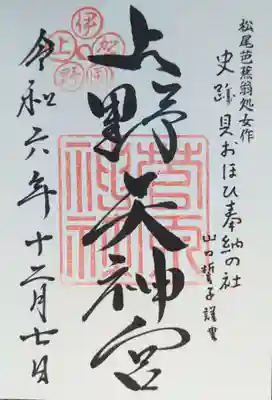 松尾芭蕉翁処女作
史跡貝おほひ奉納の社
山口誓子謹書
上野天神宮
令和六年十二月七日
伊賀国
上野
菅原神社